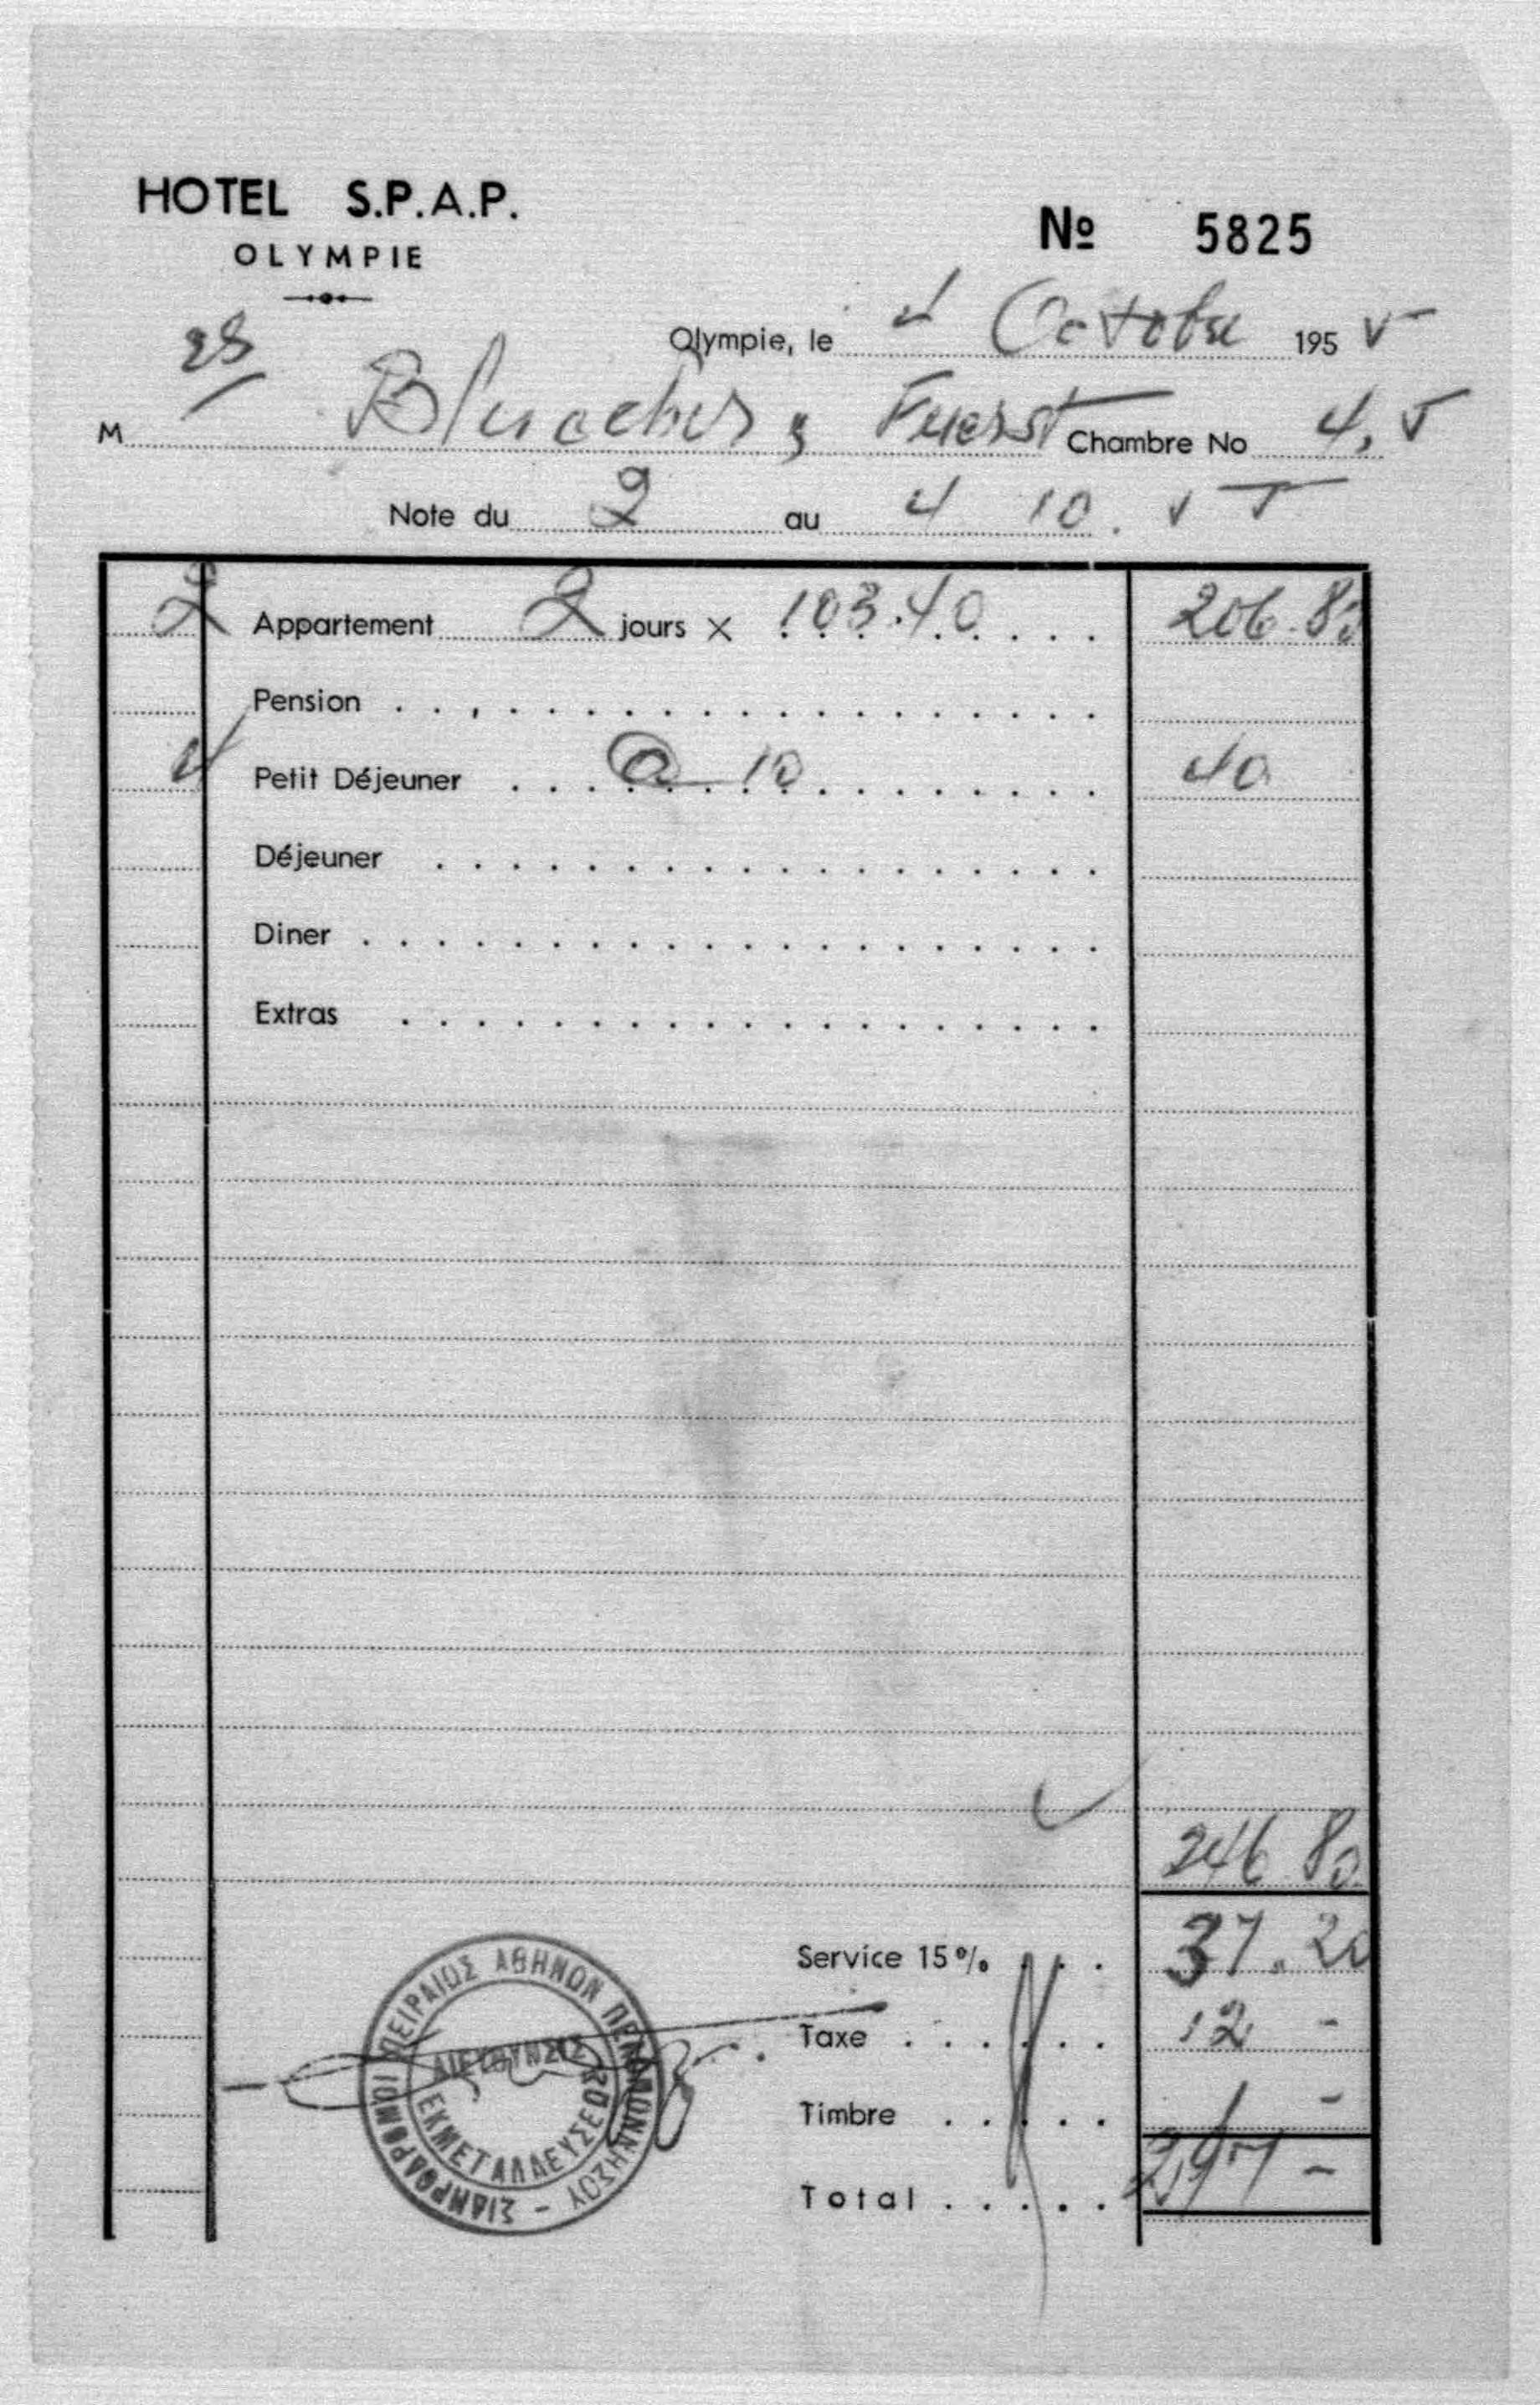 HOTEL S.P.A.P.
OLYMPIE
Nº 5825
Olympie, le 4 Octobre 1955
M rs Bluecher & Fuerst Chambre No 4, 5
Note du 2 au 4 10. 55
2 Appartement 2 jours × 103.40 206.80
Pension
4 Petit Déjeuner @ 10 40
Déjeuner
Diner
Extras
246.80
Service 15% 37.20
Taxe 12 -
Timbre 1 -
Total 297 -
ΣΙΔΗΡΟΔΡΟΜΟΙ ΠΕΙΡΑΙΩΣ ΑΘΗΝΩΝ ΠΕΛΟΠΟΝΝΗΣΟΥ -
ΔΙΕΥΘΥΝΣΙΣ
ΕΚΜΕΤΑΛΛΕΥΣΕΩΣ